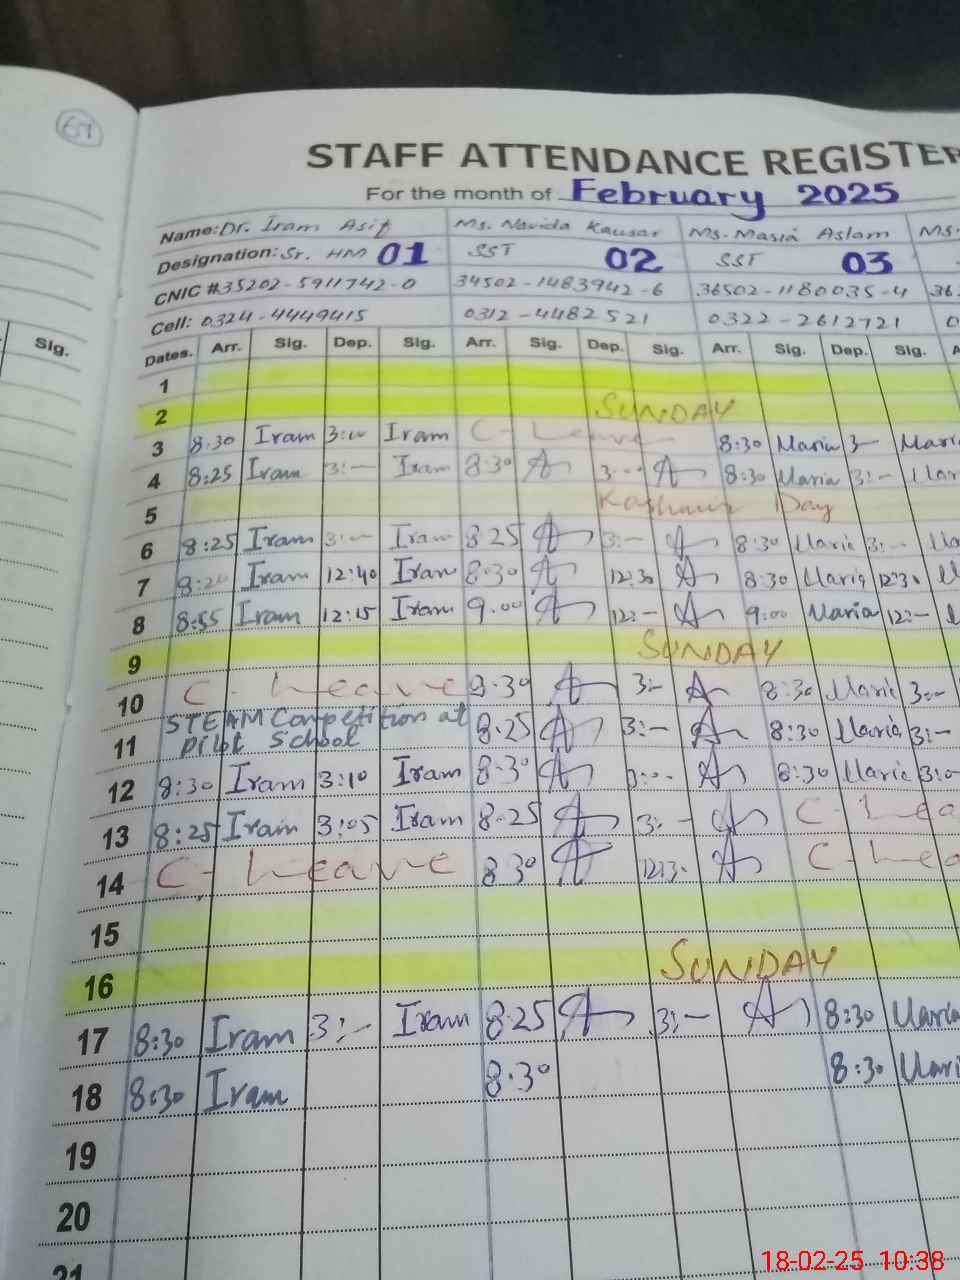 67
STAFF ATTENDANCE REGISTER
For the month of February 2025
Name: Dr. Iram Asif Ms. Navida Kausar Ms. Maria Aslam Ms.
Designation: Sr. HM 01 SST 02 SST 03
CNIC #35202-5911742-0 34502-1483942-6 36502-1180035-4 36
Cell: 0324-4449415 0312-4482521 0322-2612721 0
Sig. Dates. Arr. Sig. Dep. Sig. Arr. Sig. Dep. Sig. Arr. Sig. Dep. Sig. A
1
2 SUNDAY
3 8:30 Iram 3:00 Iram C-Leave 8:30 Maria 3- Mari
4 8:25 Iram 3:- Iram 8:30 3:00 8:30 Maria 3:-
5 Kashmir Day
6 8:25 Iram 3:- Iram 8:25 3:- 8:30 Maria 3:- Ma
7 8:20 Iram 12:40 Iram 8:30 12:30 8:30 Maria 12:30 M
8 8:55 Iram 12:15 Iram 9:00 12:- 9:00 Maria 12:-
9 SUNDAY
10 C-Leave 8:30 3:- 8:30 Maria 3:-
STEAM Competition at
11 pilot School 8:25 3:- 8:30 Maria 3:-
12 8:30 Iram 3:10 Iram 8:30 3:00 8:30 Maria 3:0
13 8:25 Iram 3:05 Iram 8:25 3:- C-Lea
14 C-Leave 8:30 12:3- C-Lea
15
16 SUNDAY
17 8:30 Iram 3:- Iram 8:25 3:- 8:30 Maria
18 8:30 Iram 8:30 8:30 Mari
19
20
21
18-02-25 10:38